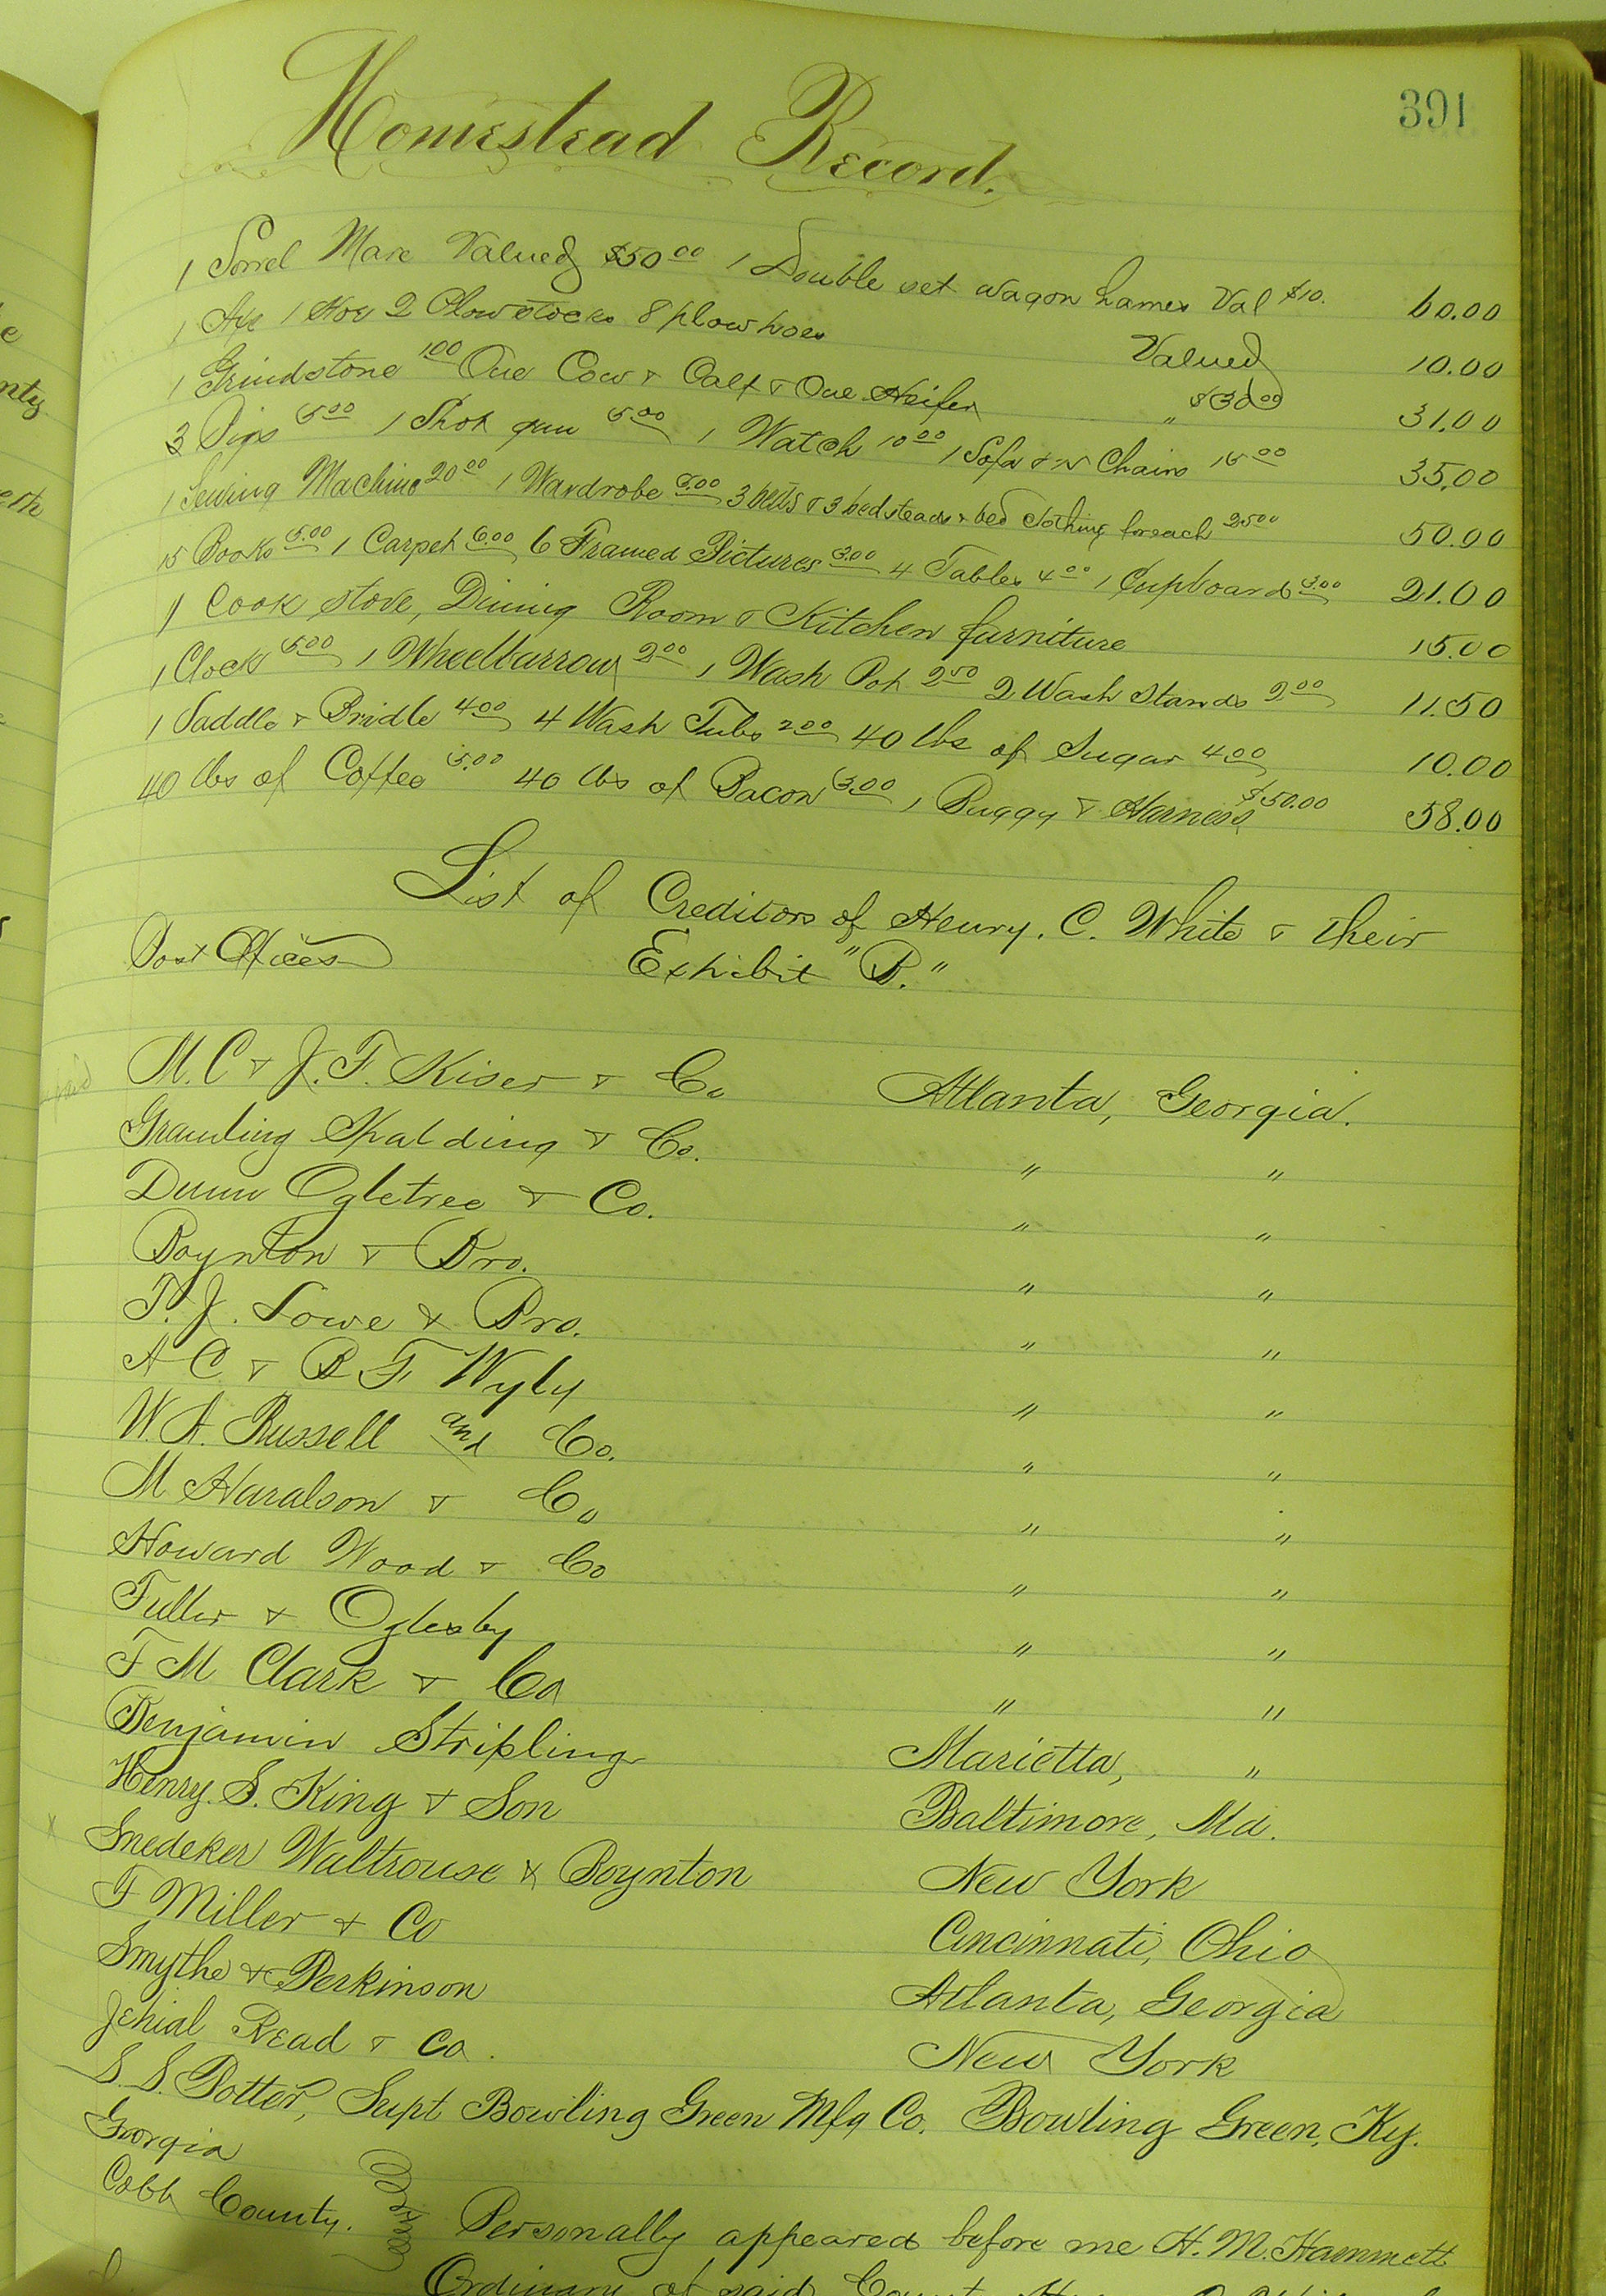 391
Homestead Record.
1 Sorrel Mare Valued $50 00 1 Double set wagon hames Val $10. 60.00
1 Axe 1 Hoe 2 Plowstocks 8 plow hoes Valued 10.00
1 Grindstone 1 00 One Cow & Calf & One Heifer " $30 00 31.00
3 Pigs 5 00 1 Shot gun 5 00 1 Watch 10 00 1 Sofa & Chairs 15 00 35.00
1 Sewing Machine 20 00 1 Wardrobe 5.00 3 beds & 3 bedsteads & bed clothing for each 25 00 50.00
15 Books 5.00 1 Carpet 6.00 6 Framed Pictures 3.00 4 Tables 4 00 1 Cupboard 3.00 21.00
1 Cook stove, Dining Room & Kitchen furniture 15.00
1 Clock 5.00 1 Wheelbarrow 2 00 1 Wash Pot 2 50 2 Wash Stands 2 00 11.50
1 Saddle & Bridle 4 00 4 Wash Tubs 2 00 40 lbs of Sugar 4.00 10.00
40 lbs of Coffee 5.00 40 lbs of Bacon 3.00 1 Buggy & Harness $50.00 58.00
List of Creditors of Henry. C. White & their
Post Offices Exhibit "B."
M. C & J. F. Kiser & Co Atlanta, Georgia.
Gramling Spalding & Co. " "
Dunn Ogletree & Co. " "
Boynton & Bro. " "
T. J. Lowe & Bro. " "
A C & B F Wyly " "
W. A. Russell and Co. " "
M Haralson & Co " "
Howard Wood & Co " "
Fuller & Oglesby " "
F M Clark & Co " "
Benjamin Stripling Marietta, "
Henry. S. King & Son Baltimore, Md.
x Snedeker Waltrouse & Boynton New York
F Miller & Co Cincinnati, Ohio
Smythe & Perkinson Atlanta, Georgia
Jehial Read & Co. New York
S. S. Potter, Supt Bowling Green Mfg Co. Bowling Green, Ky.
Georgia
Cobb County. Personally appeared before me H. M. Hammett
Ordinary of said County